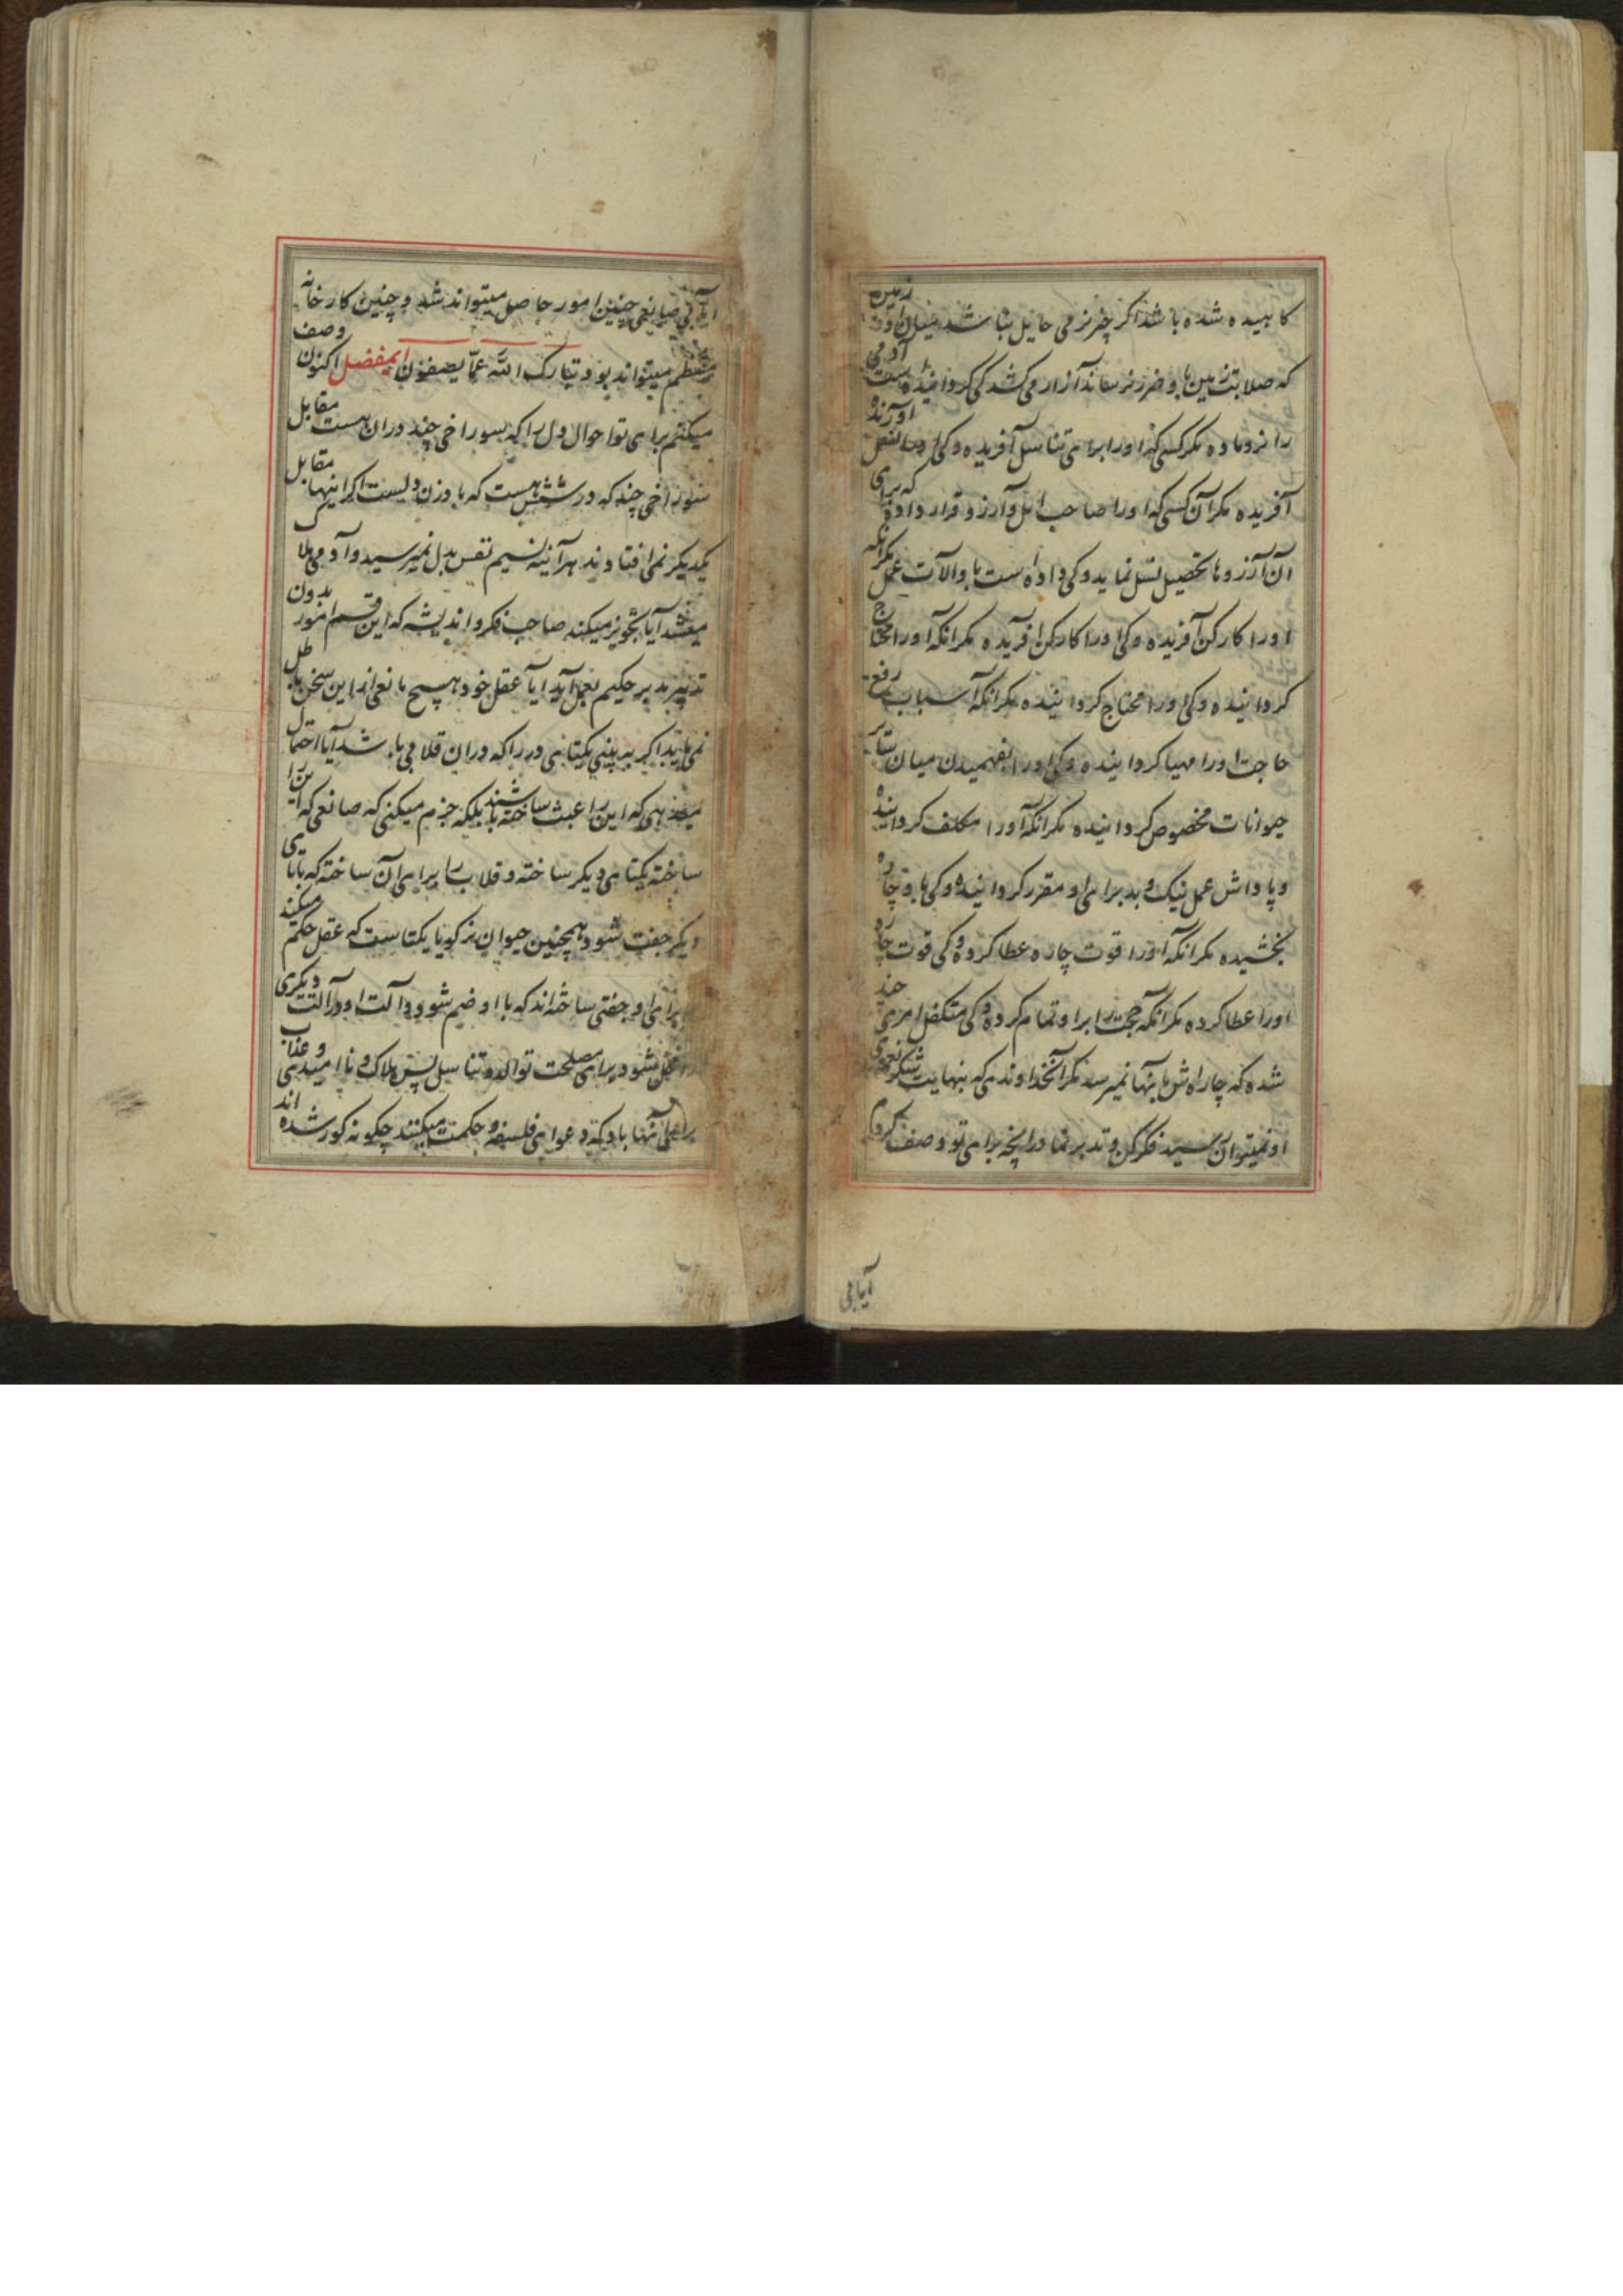 کاهیده شده باشد اگر چیز نرمی حایل نباشد میان او و زمین
که صلابت زمین باو ضرر نرساند آزار می‌کشد کی گردانیده است آدمی
را نر و ماده مگر کسی که او را برای تناسل آفریده و کی او را نسل آورنده
آفریده مگر آن کسی که او را صاحب امل و آرزو قرار داده که برای
آن آرزوها تحصیل نسل نماید و کی داده است باو آلات عمل مگر آنکه
او را کارکن آفریده و کی او را کارکن آفریده مگر آنکه او را محتاج
گردانیده و کی او را محتاج گردانیده مگر آنکه اسباب رفع
حاجت او را مهیا گردانیده و کی او را بفهمیدن میان سایر
حیوانات مخصوص گردانیده مگر آنکه او را مکلف گردانیده
و پاداش عمل نیک و بد برای او مقرر گردانیده و کی باو چاره
بخشیده مگر آنکه او را قوت چاره عطا کرده و کی قوت چاره
او را عطا کرده مگر آنکه حجت را بر او تمام کرده و کی متکفل امری چند
شده که چاره‌اش بآنها نمیرسد مگر آنخداوندی که بنهایت شکر نعمای
او نمیتوان رسید فکر کن و تدبر نما در آنچه برای تو وصف کردم
آیا بی
آیا بی صانعی چنین امور حاصل میتواند شد و چنین کارخانه
منتظم میتواند بود تبارک الله عمّا یصفون ایمفضل اکنون وصف
میکنم برای تو احوال دل را که سوراخی چند در آن هست مقابل
سوراخی چند که در شش هست که بادزن دلست اگر اینها مقابل
یکدیگر نمی‌افتادند هرآینه نسیم نفس بدل نمیرسید و آدمی هلاک
میشد آیا تجویز میکند صاحب فکر و اندیشه که این قسم امور بدون
تدبیر مدبر حکیم بعمل آید آیا عقل خود هیچ مانعی از این سخن باطل
نمی‌یابد اگر به بینی یکتائی در را که در آن قلابی باشد آیا احتمال
میدهی که این را عبث ساخته باشند بلکه جزم میکنی که صانعی که این را
ساخته یکتای دیگر ساخته و قلاب را برای آن ساخته که با تای
دیگر جفت شود همچنین حیوان نر گویا یکتاست که عقل حکم میکند
برای او جفتی ساخته‌اند که با او ضم شود و آلت او در آلت دیگری
داخل شود برای مصلحت توالد و تناسل پس هلاک و ناامیدی و عذاب
برای آنها باد که دعوای فلسفه و حکمت میکنند چگونه کور شده اند